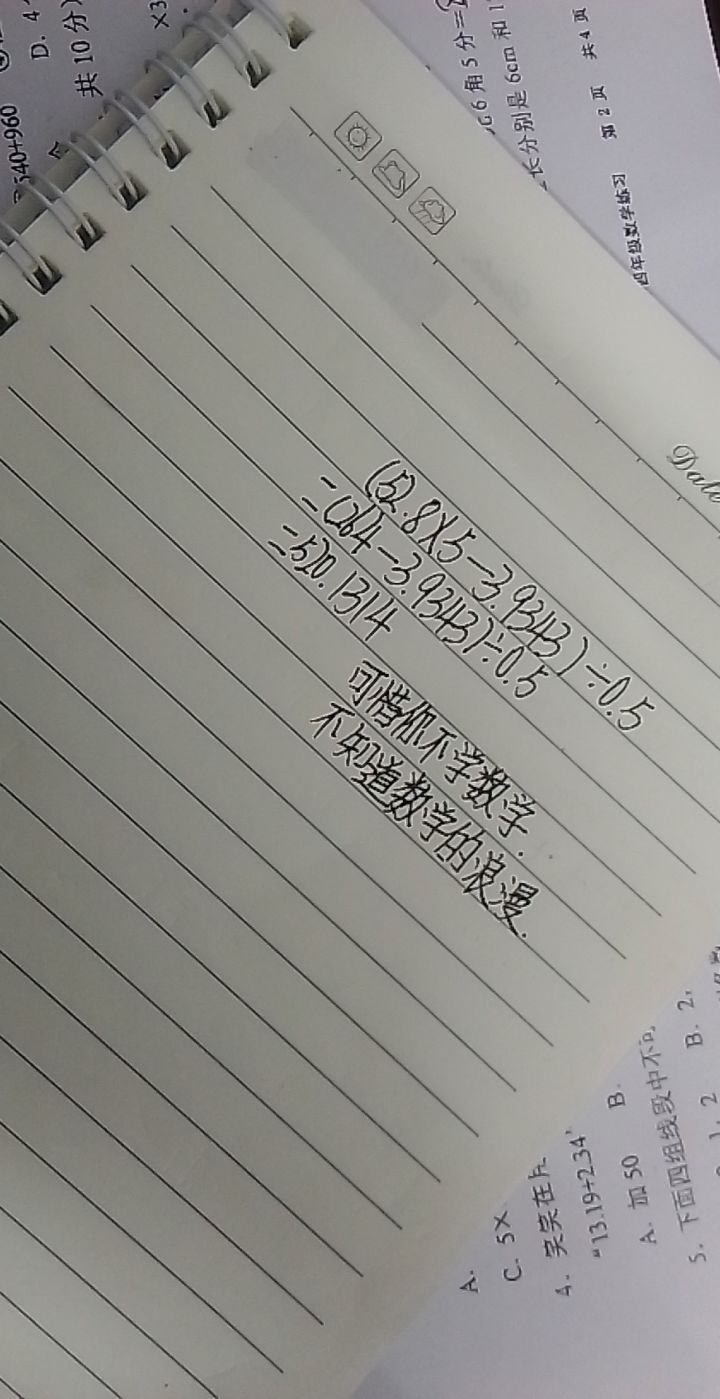 (52.8×5-3.9343)÷0.5
=(264-3.9343)÷0.5
=520.1314
可惜你不学数学.
不知道数学的浪漫.
Date
540+960
D. 4
共10分)
×3
6角5分=
长分别是6cm和1
四年级数学练习 第2页 共4页
A.
C. 5×
4. 笑笑在
"13.19+2.34"
A. 加50 B.
5. 下面四组线段中不可
2 B. 2,